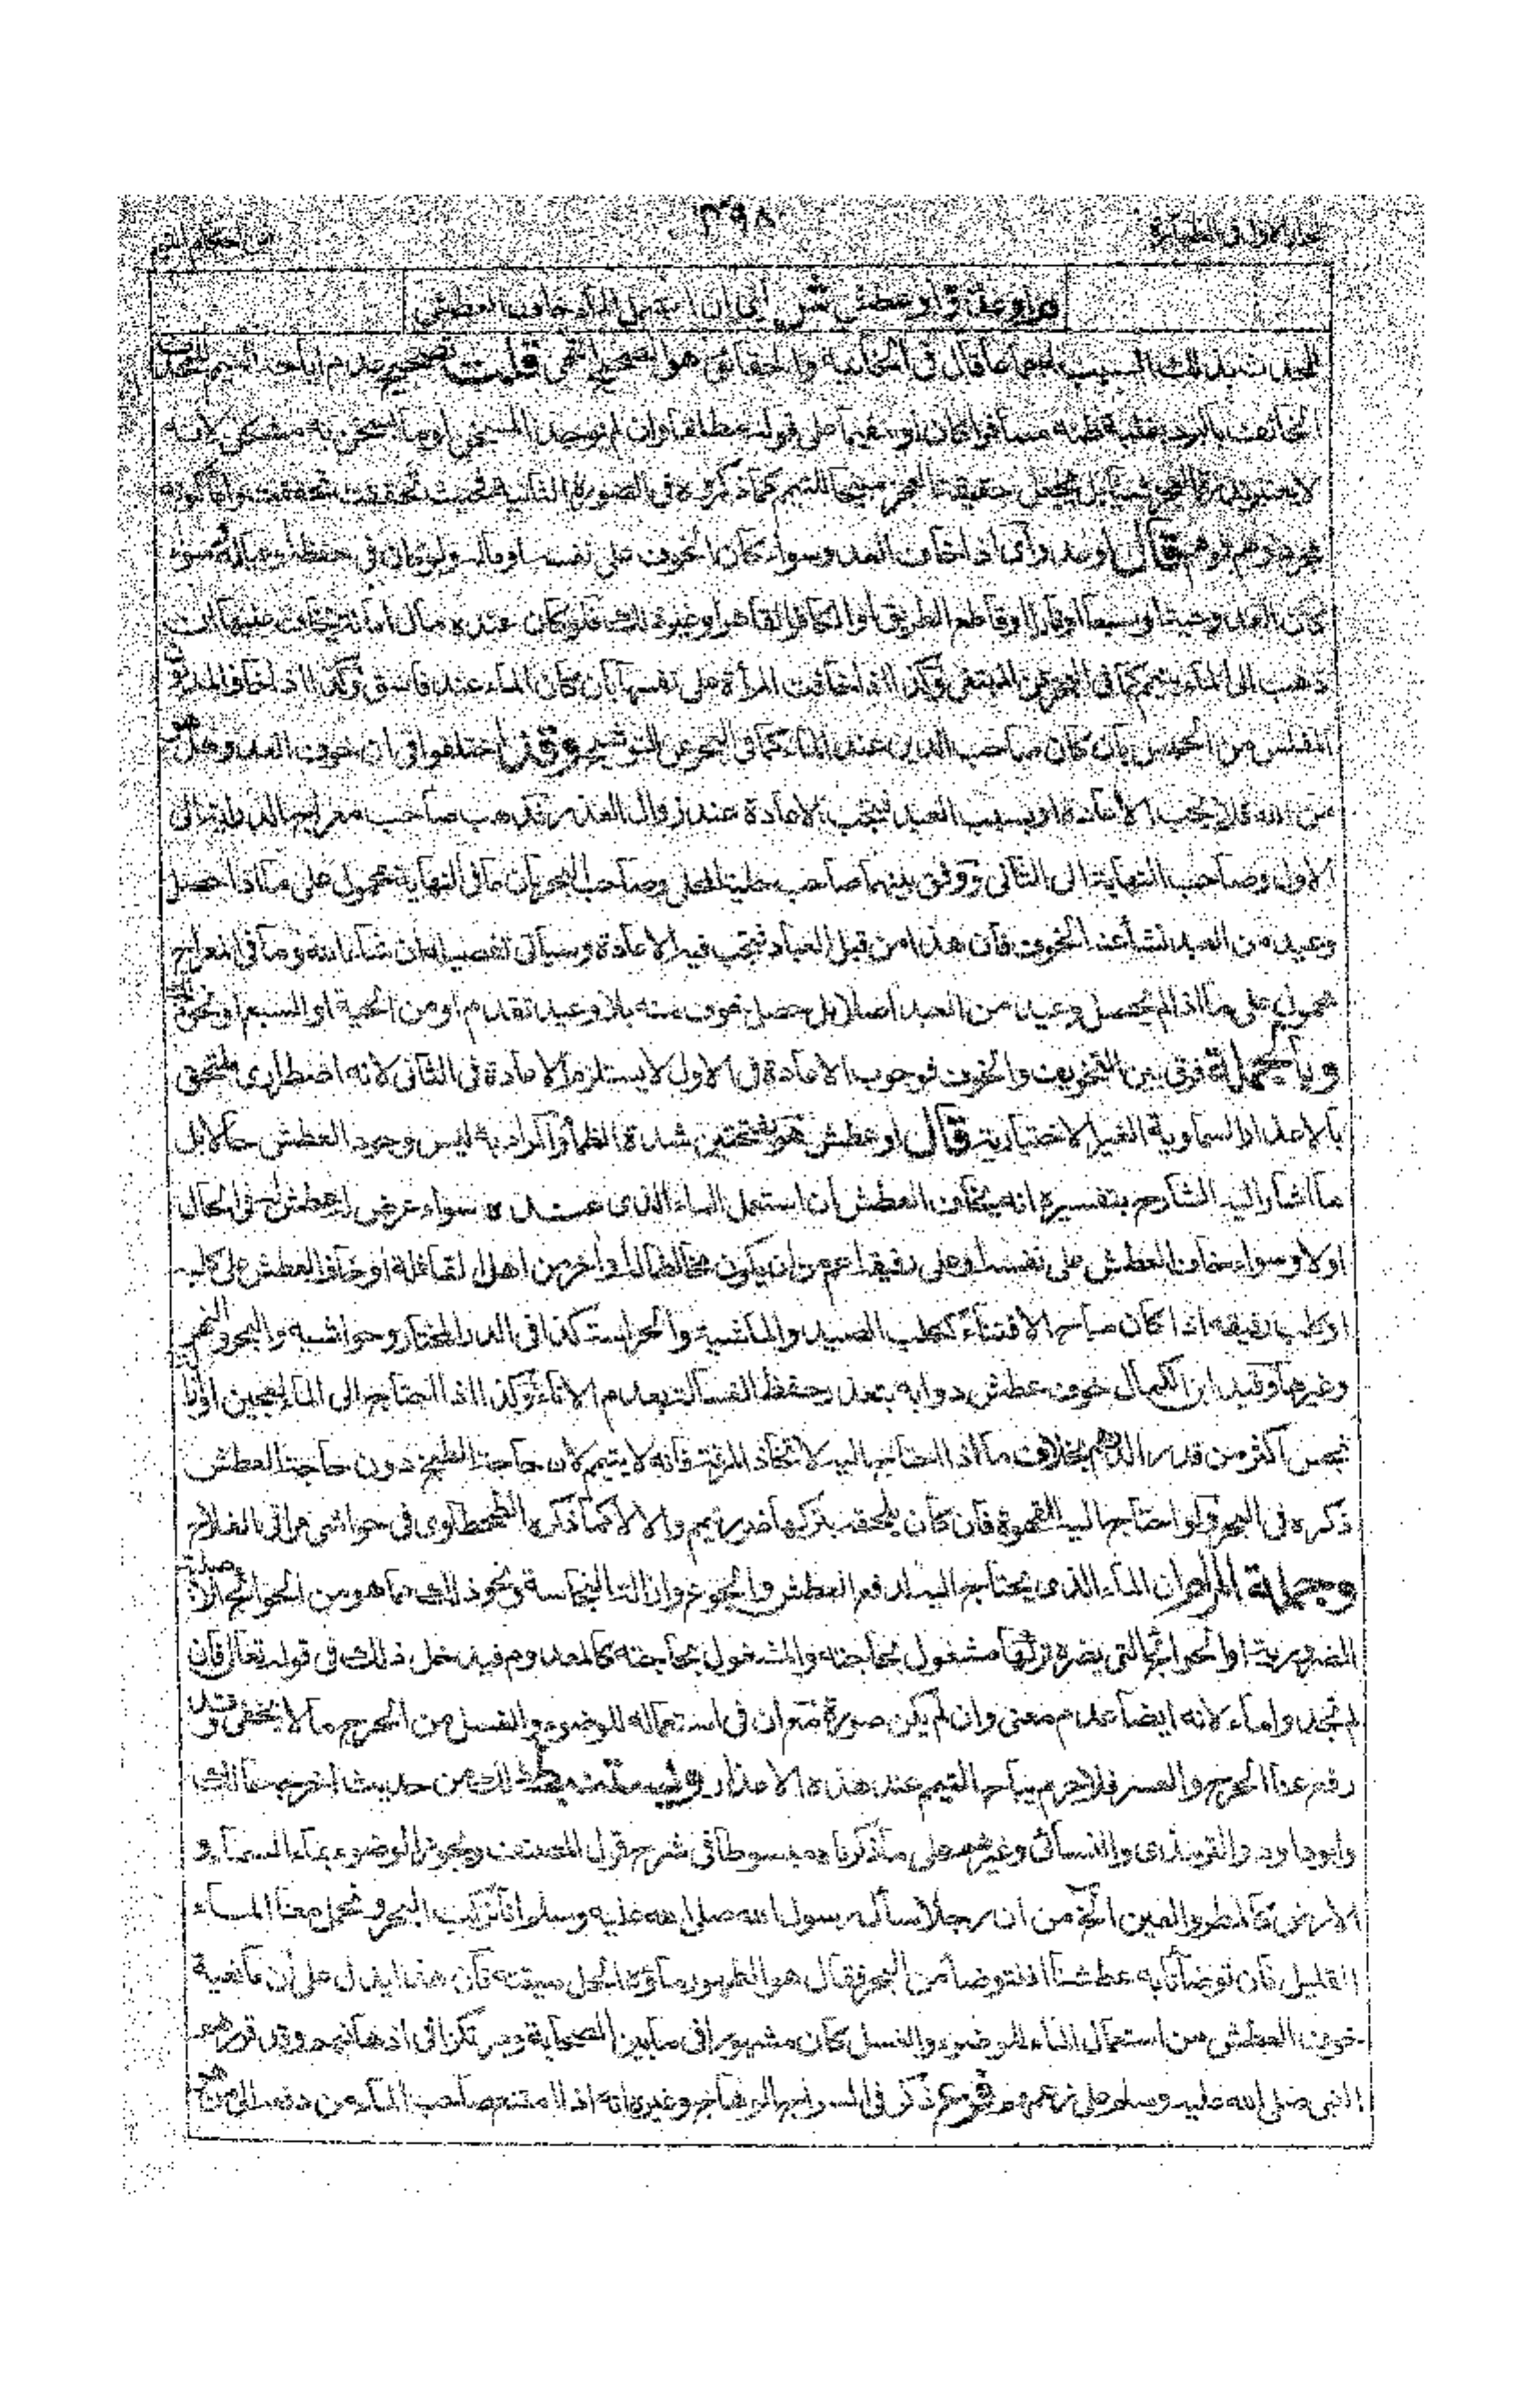 ٣٩٨
الجلد الاول فى الطهارة
من احكام التيمم
م او عدو او عطش ش اى ان استعمل الماء خاف العطش
للمحدث بذلك السبب اجماعا قال فى الخانية والحقائق هو الصحيح انتهى قلت تصحيح عدم اباحة التيمم للمحدث
الخائف بالبرد مسافرا كان او مقيما على قوله مطلقا وان لم يوجد المسخن او ما يسخن به مشكل لانه
حقيقة العجز مبيحا للتيمم كما ذكره فى الصورة الثانية فحيث تحققت تحققت واما كونه
مجرد وهم قال او عدو اى اذا خاف العدو سواء كان الخوف على نفسه او ماله ولو كان فى حفظه سواء
كان العدو حية او سبعا او نارا او قاطع الطريق او الكافر القاهر او غير ذلك فلو كان عنده مال امانة يخاف عليها ان
ذهب الى الماء يتيمم كما فى البحر عن المبتغى وكذا اذا خافت المرأة على نفسها بان كان الماء عند فاسق وكذا اذا خاف المديون
المفلس من الحبس بان كان صاحب الدين عند الماء كما فى البحر عن التوشيح وقد اختلفوا فى ان خوف العدو هل هو
من الله فلا يجب الاعادة او بسبب العبد فتجب الاعادة عند زوال العذر فذهب صاحب معراج الدراية الى
الاول وصاحب النهاية الى الثانى ووفق بينهما صاحب حلية المحلى وصاحب البحر بان ما فى النهاية محمول على ما اذا حصل
وعيد من العبد نشأ عنه الخوف فان هذا من قبل العباد فتجب فيه الاعادة وسيأتى تفصيله ان شاء الله وما فى المعراج
محمول على ما اذا لم يحصل وعيد من العبد اصلا بل حصل خوف منه بلا وعيد تقدم او من الحية او السبع او نحو ذلك
وبالجملة فرق بين التخويف والخوف فوجوب الاعادة فى الاول لا يستلزم الاعادة فى الثانى لانه اضطرارى ملتحق
بالاعذار السماوية الغير الاختيارية قال او عطش هو بفتحتين شدة الظمأ والمراد به ليس وجود العطش حالا بل
ما اشار اليه الشارح بتفسيره انه يخاف العطش ان استعمل الماء الذى عنده سواء عرض له عطش فى الحال
اولا وسواء خاف العطش على نفسه او على رفيقه اعم من ان يكون مخالطا له او اخر من اهل القافلة او خاف العطش على كلبه
او كلب رفيقه اذا كان مباح الاقتناء ككلب الصيد والماشية والحراسة كذا فى الدر المختار وحواشيه والبحر والنهر
وغيرها وقيد ابن الكمال خوف عطش دوابه بتعذر حفظ الغسالة بعدم الاناء وكذا اذا احتاج الى الماء لعجين او ازالة
نجس اكثر من قدر الدرهم بخلاف ما اذا احتاج اليه لاتخاذ المرقة فانه لا يتيمم لان حاجة الطبخ دون حاجة العطش
ذكره فى البحر ولو احتاج اليه للقهوة فان كان يلحقه بتركها ضرر تيمم والا لا كما ذكره الطحطاوى فى حواشى مراقى الفلاح
وجملة المرام ان الماء الذى يحتاج اليه لدفع العطش والجوع وازالة النجاسة ونحو ذلك مما هو من الحوائج الاصلية
الضرورية او الحوائج التى يضره تركها مشغول بحاجته والمشغول بحاجته كالمعدوم فيدخل ذلك فى قوله تعالى فان
لم تجدوا ماء لانه ايضا عدم معنى وان لم يكن صورة ثم ان فى استعماله للوضوء والغسل من الحرج ما لا يخفى وقد
رفع عنا الحرج والعسر فلا جرم يباح التيمم عند هذه الاعذار وليستنبط ذلك من حديث اخرجه مالك
وابو داود والترمذى والنسائى وغيرهم على ما ذكرناه مبسوطا فى شرح قول المصنف ويجوز الوضوء بماء السماء و
الارض كالمطر والعين الخ من ان رجلا سأل رسول الله صلى الله عليه وسلم انا نركب البحر ونحمل معنا الماء
القليل فان توضأنا به عطشنا افنتوضأ من البحر فقال هو الطهور ماؤه الحل ميتته فان هذا يدل على ان مانعية
خوف العطش من استعمال الماء للوضوء والغسل كان مشهورا فى ما بين الصحابة ومرتكزا فى اذهانهم وقد قررهم
النبى صلى الله عليه وسلم على زعمهم فروع ذكر فى السراج الوهاج وغيره انه اذا امتنع صاحب الماء من دفعه الى